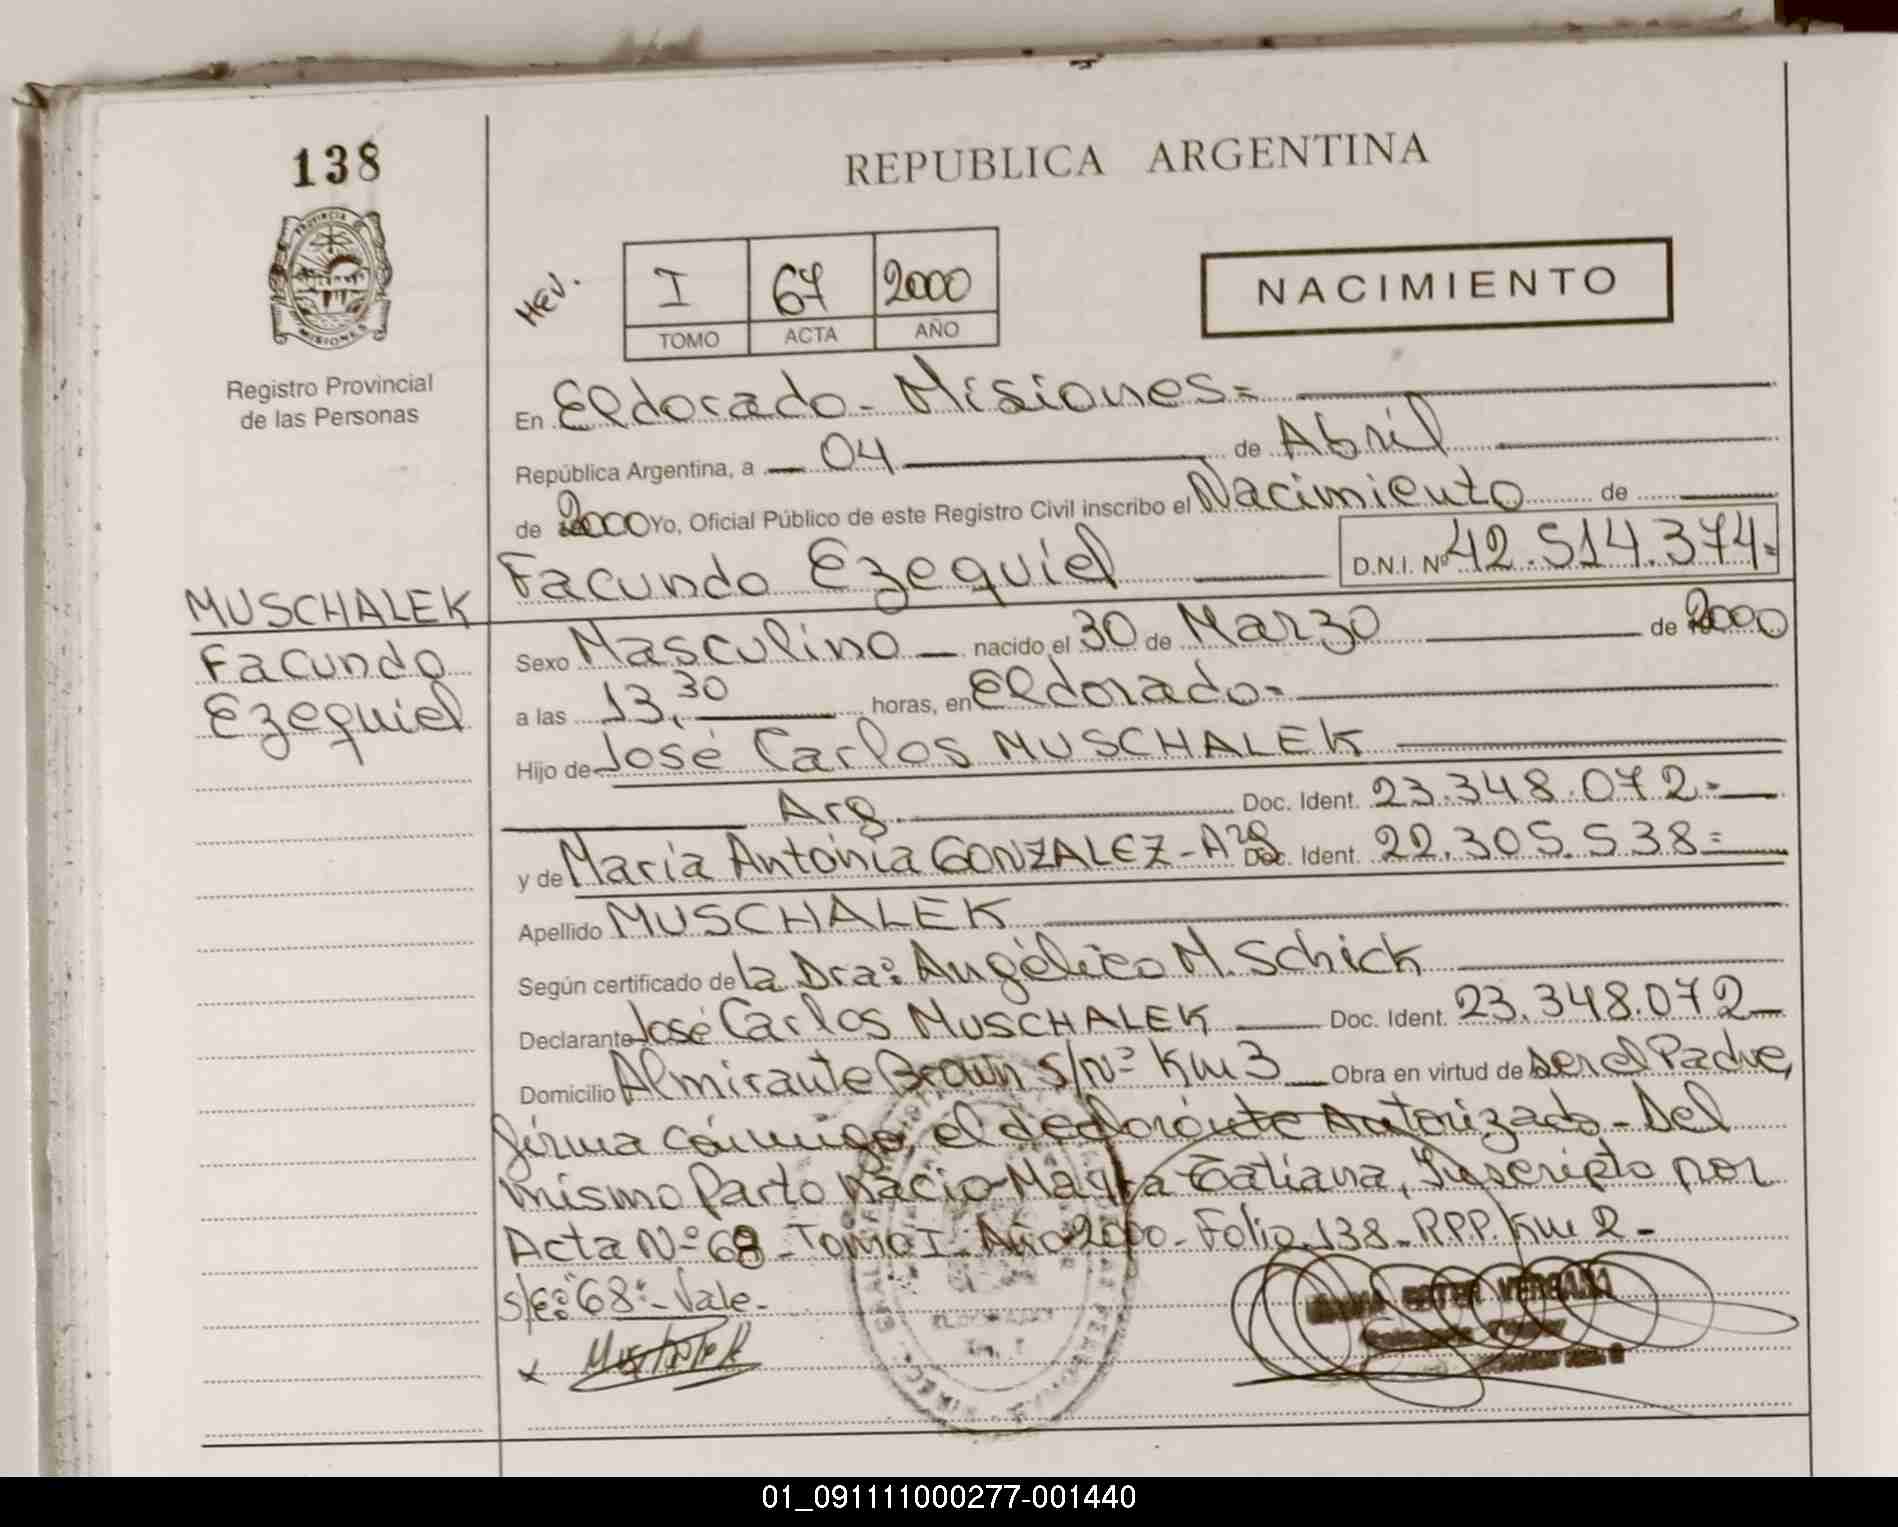 138
REPUBLICA ARGENTINA
PROVINCIA
MISIONES
Registro Provincial
de las Personas
MEV.
I 67 2000
TOMO ACTA AÑO
NACIMIENTO
En Eldorado - Misiones=
República Argentina, a 04 de Abril
de 2000 Yo, Oficial Público de este Registro Civil inscribo el Nacimiento de
Facundo Ezequiel D.N.I. Nº 42.514.374=
MUSCHALEK
Facundo
Ezequiel
Sexo Masculino nacido el 30 de Marzo de 2000
a las 13,30 horas, en Eldorado=
Hijo de José Carlos MUSCHALEK
Arg. Doc. Ident. 23.348.072=
y de María Antonia GONZALEZ - Arg Doc. Ident. 22.305.538=
Apellido MUSCHALEK
Según certificado de la Dra: Angélica M. Schick
Declarante José Carlos MUSCHALEK Doc. Ident. 23.348.072
Domicilio Almirante Brown s/nº Km 3 Obra en virtud de ser el Padre,
firma conmigo el declarante Autorizado - Del
mismo Parto Nacio - Tatiana, Inscripto por
Acta Nº 68 - Tomo I - Año 2000 - Folio 138 - R.P.P. Km 2 -
S/E: "68" - Vale -
x Muschalek
ESTER VERGARA
01_091111000277-001440